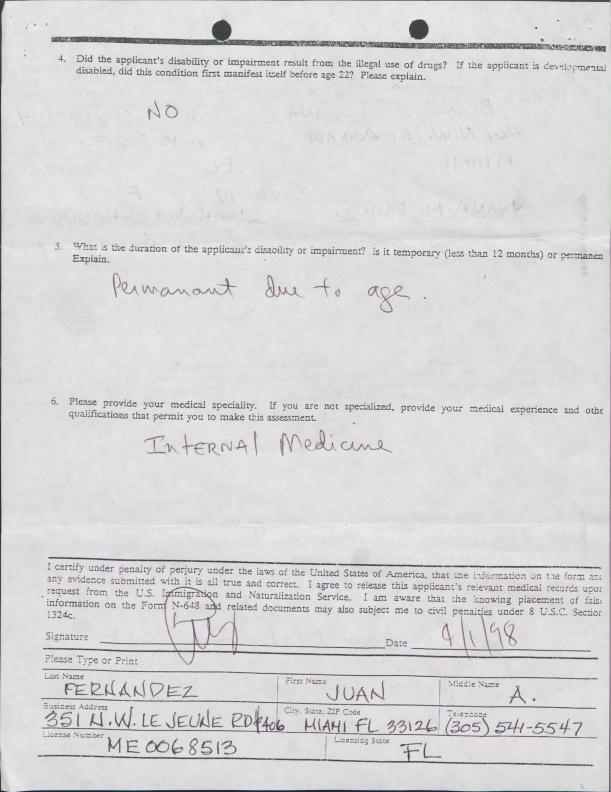 4. Did the applicant's disability or impairment result from the illegal use of drugs? If the applicant is developmental
disabled, did this condition first manifest itself before age 22? Please explain.
NO
5. What is the duration of the applicant's disability or impairment? Is it temporary (less than 12 months) or permanen
Explain.
Permanant due to age.
6. Please provide your medical speciality. If you are not specialized, provide your medical experience and othe
qualifications that permit you to make this assessment.
INTERNAL Medicine
I certify under penalty of perjury under the laws of the United States of America, that the information on the form and
any evidence submitted with it is all true and correct. I agree to release this applicant's relevant medical records upon
request from the U.S. Immigration and Naturalization Service. I am aware that the knowing placement of fals
information on the Form N-648 and related documents may also subject me to civil penalties under 8 U.S.C. Section
1324c.
Signature Date 4/1/98
Please Type or Print
Last Name First Name Middle Name
FERNANDEZ JUAN A.
Business Address City, State, ZIP Code Telephone
351 N.W. LE JEUNE RD #406 MIAMI FL 33126 (305) 541-5547
License Number Licensing State
ME0068513 FL